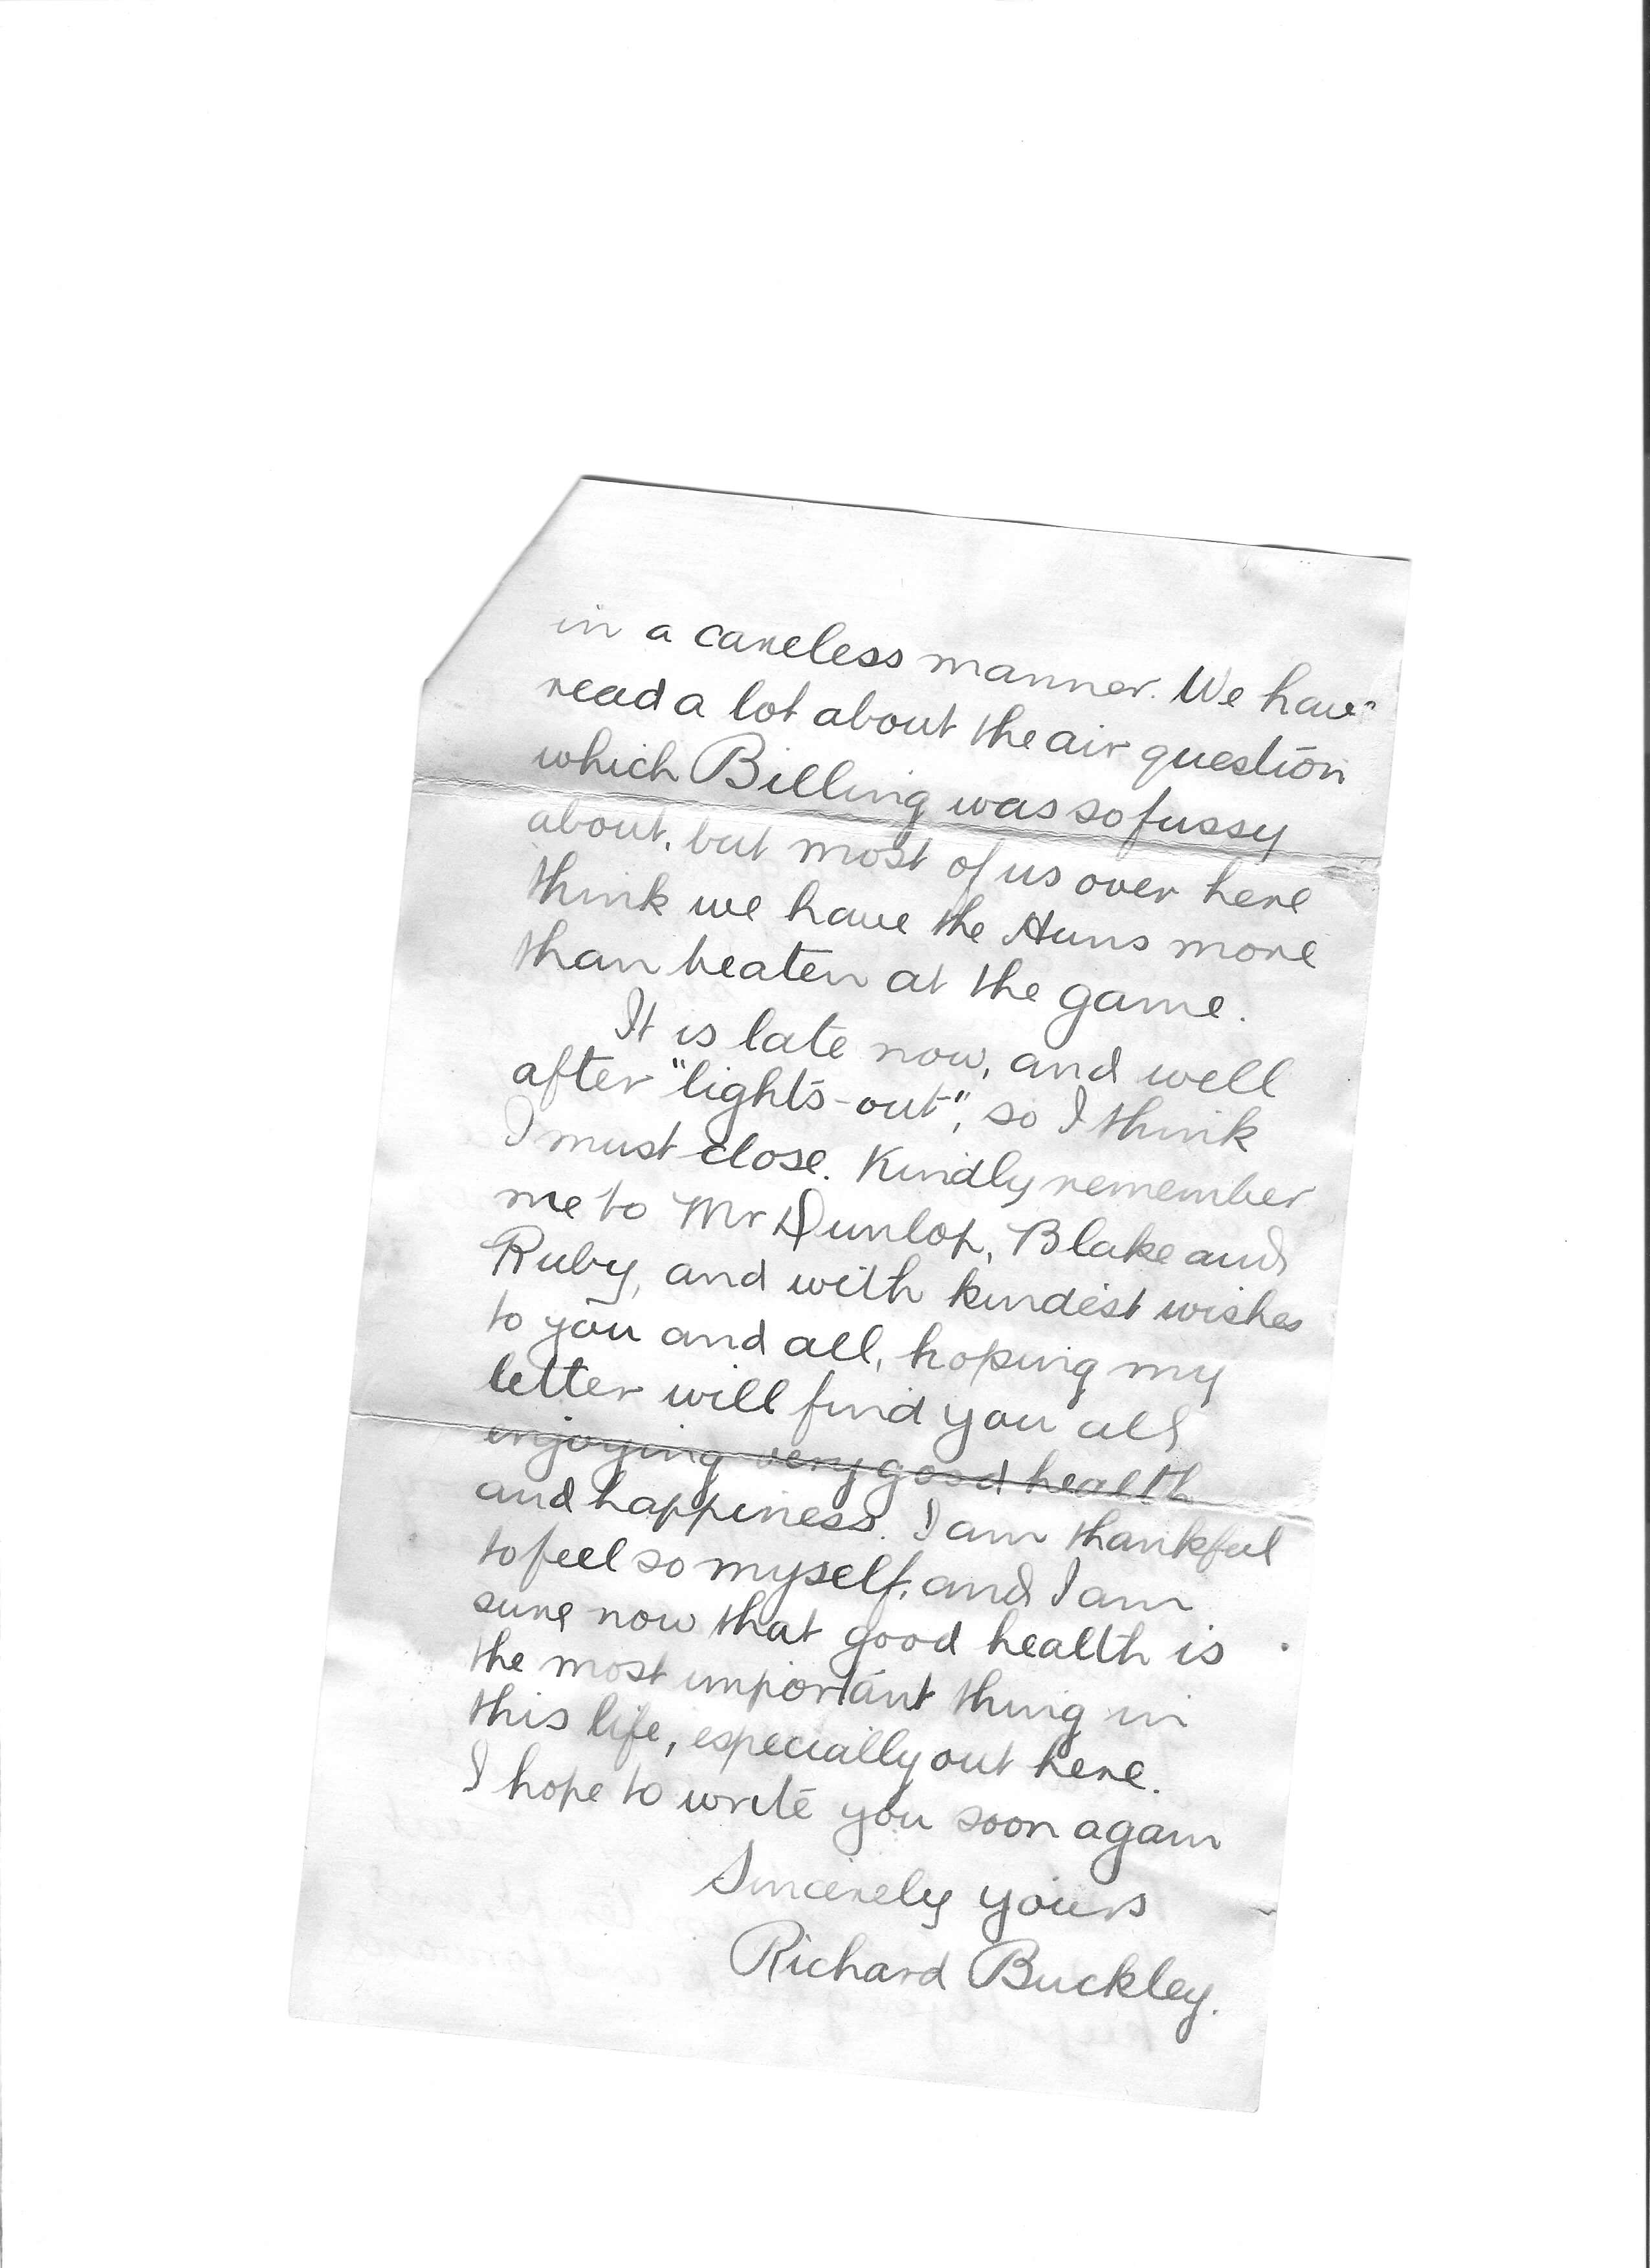 in a careless manner. We have
read a lot about the air question
which Billing was so fussy
about, but most of us over here
think we have the Huns more
than beaten at the game.
It is late now, and well
after "lights-out", so I think
I must close. Kindly remember
me to Mr Dunlop, Blake and
Ruby, and with kindest wishes
to you and all, hoping my
letter will find you all
enjoying very good health
and happiness. I am thankful
to feel so myself, and I am
sure now that good health is
the most important thing in
this life, especially out here.
I hope to write you soon again
Sincerely yours
Richard Buckley.